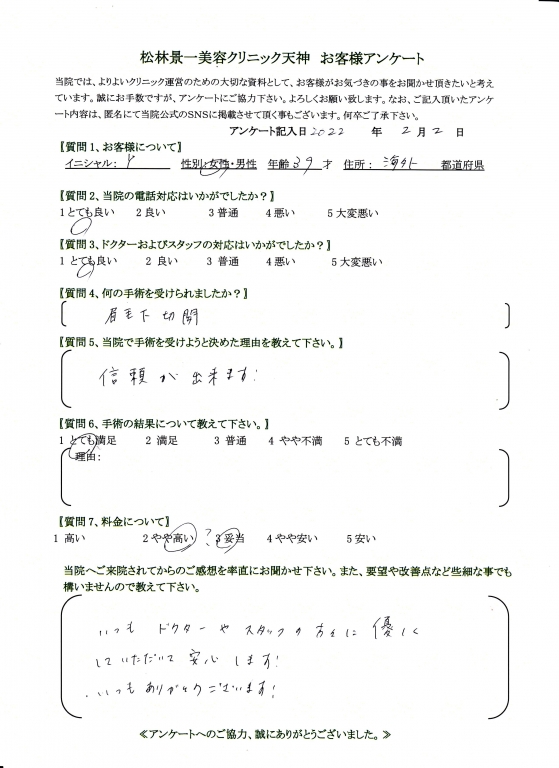 松林景一美容クリニック天神 お客様アンケート
当院では、よりよいクリニック運営のための大切な資料として、お客様がお気づきの事をお聞かせ頂きたいと考え
ています。誠にお手数ですが、アンケートにご協力下さい。よろしくお願い致します。なお、ご記入頂いたアンケ
ート内容は、匿名にて当院公式のSNSに掲載させて頂く事もございます。何卒ご了承下さい。
アンケート記入日 2022 年 2 月 2 日
【質問1、お客様について】
イニシャル: Y 性別:女性・男性 年齢 39 才 住所: 海外 都道府県
【質問2、当院の電話対応はいかがでしたか?】
1とても良い 2良い 3普通 4悪い 5大変悪い
【質問3、ドクターおよびスタッフの対応はいかがでしたか?】
1とても良い 2 良い 3 普通 4悪い 5大変悪い
【質問4、何の手術を受けられましたか?】
眉毛下切開
【質問5、当院で手術を受けようと決めた理由を教えて下さい。】
信頼が出来ます!
【質問6、手術の結果について教えて下さい。】
1 とても満足 2 満足 3 普通 4 やや不満 5 とても不満
理由:
【質問7、料金について】
1 高い 2やや高い ? 3妥当 4やや安い 5安い
当院へご来院されてからのご感想を率直にお聞かせ下さい。また、要望や改善点など些細な事でも
構いませんので教えて下さい。
いつも ドクターや スタッフの方々に 優しく
していただいて 安心します!
いつもありがとうございます!
≪アンケートへのご協力、誠にありがとうございました。≫